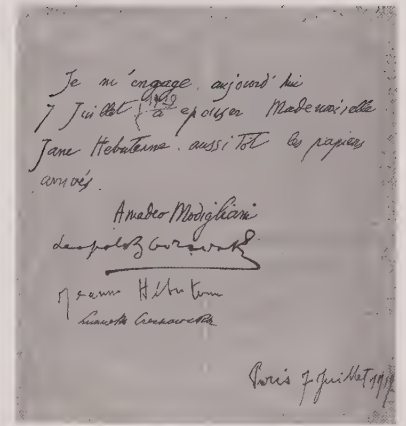 Je m'engage aujourd'hui
7 Juillet 1919 à epouser Mademoiselle
Jane Hebuterne. aussi tôt les papiers
arrivés.
Amedeo Modigliani
Leopold Zborowski
Jeanne Hébuterne
Lunia Czechowska
Paris 7 Juillet 1919